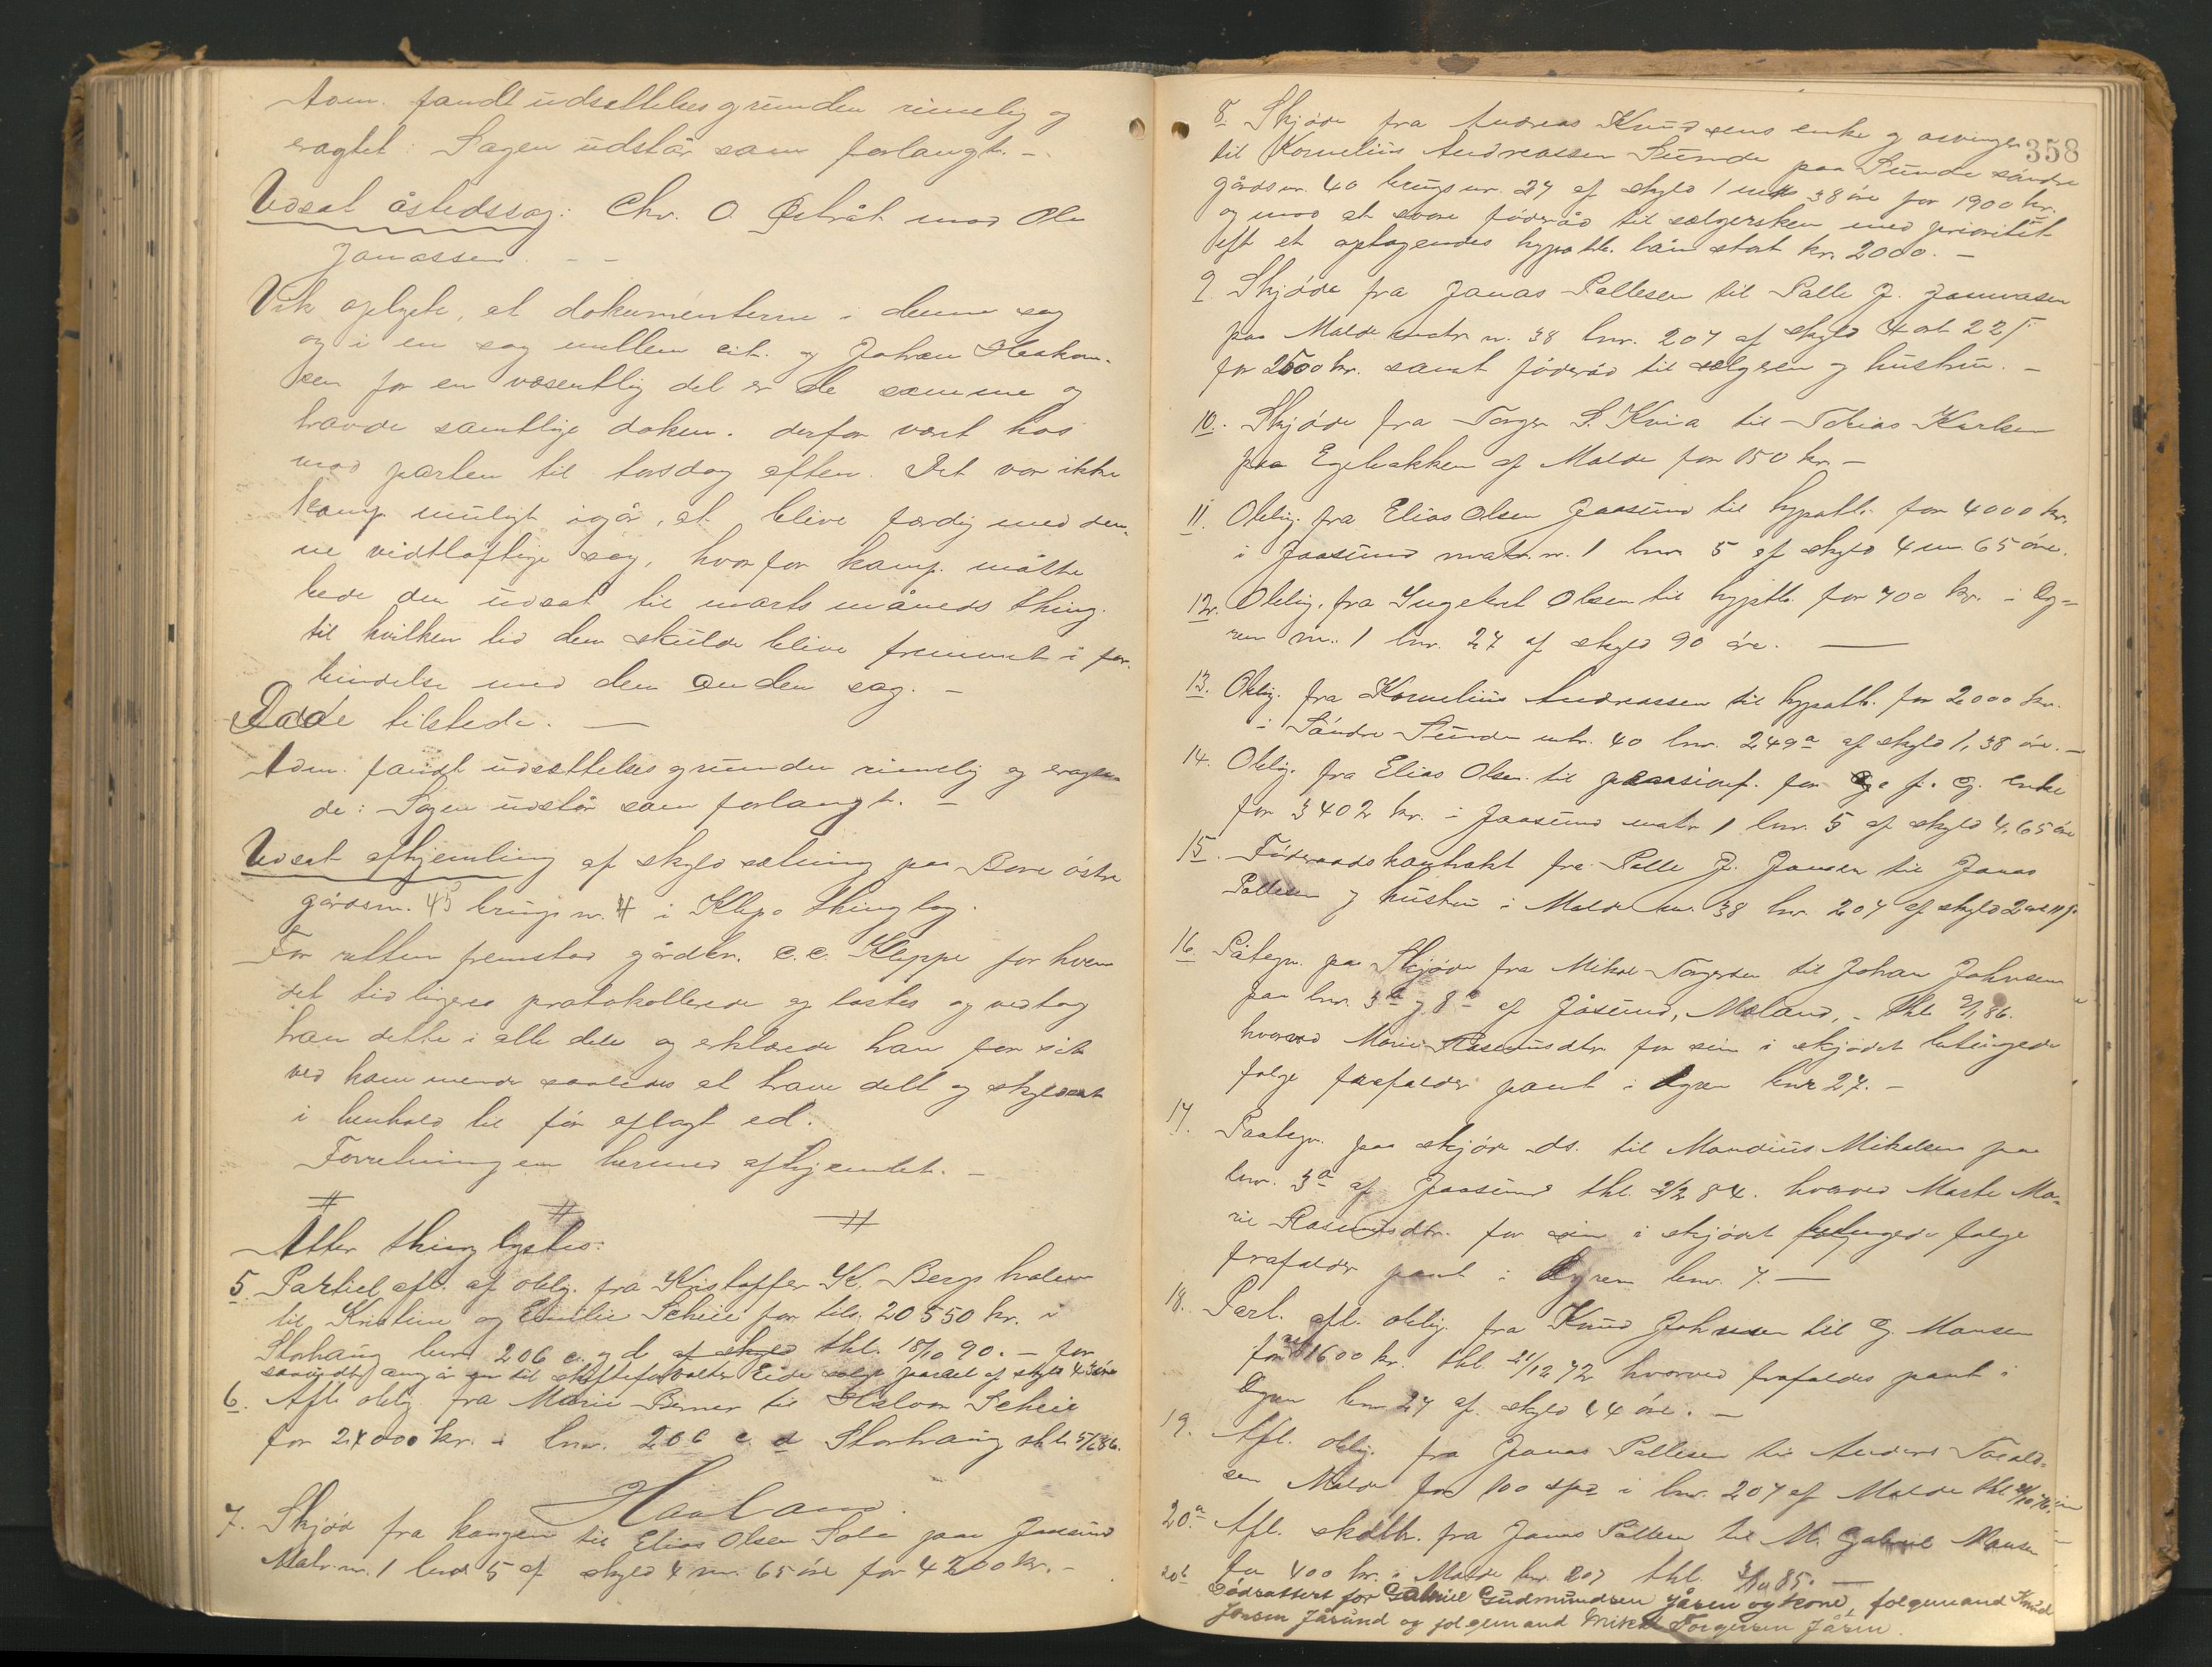 Dom. fandt udsættelsesgrunden rimelig og
eragtet: Sagen udstår som forlangt. –
Udsat åstedssag: Chr. O. Østråt mod Ole
Janassen. – –
Vik oplyste, at dokumenterne i denne sag
og i en sag mellem cit. og Johan Haakon-
sen for en væsentlig del er de samme og
havde samtlige dokum. derfor været hos
mod parten til torsdag aften. Det var ikke
komp. muligt igår, at blive færdig med den-
ne vidtløftige sag, hvorfor komp. måtte
bede den udsat til marts måneds thing.
til hvilken tid den skulde blive fremmet i for-
bindelse med den anden sag. –
tilstede. –
Dom. fandt udsættelsesgrunden rimelig og eragte-
de: Sagen udstår som forlangt. –
Udsat afhjemling af skyldsætning paa Bore østre
gårdsnr. 45 brugsnr. 4 i Klep thinglag.
For retten fremstod gårdbr. C. C. Kleppe for hvem
det tidligere protokollerede og læstes og vedtog
han dette i alle dele og erklærede han for sit
vedkommende saaledes at have delt og skyldsat
i henhold til før aflagt ed.
Forretningen hermed afhjemlet. –
# # #
Atter thinglystes:
5. Partiel afl. af oblig. fra Kristoffer K. Berg
til Kristine og Emilie Scheie for tils. 20550 kr. i
Storhaug lnr. 206 c. og d af skyld thl. 18/10 90. – for
savidt angår en til skifteforvalter Eide solgt parcel af skyld 4
6. Afl. oblig. fra Marie Berner til Halvor Scheie
for 24000 kr. i lnr. 206 c. d Storhaug thl.
Haaland.
7. Skjøde fra kongen til Elias Olsen Sola paa Jaasund
Matr. nr. 1 lnr. 5 af skyld 4 m. 65 øre for 4200 kr. –
358
8. Skjøde fra Andreas Knudsens enke og arvinger
til Kornelius Andreassen Sunde paa Sunde søndre
gårdsnr. 40 brugsnr. 27 af skyld 1 mk 38 øre for 1900 kr.
og mod at svare føderåd til sælgersken med prioritet
eft. et optagendes hypoth. lån stort kr. 2000. –
9. Skjøde fra Janas Pallesen til Palle J. Janassen
paa Malde matr. nr. 38 lnr. 207 af skyld 4 ort 22 s
for 2500 kr. samt føderåd til sælgeren og hustru. –
10. Skjøde fra Torger S. Kvia til Tobias Karlsen
paa Egebakken af Malde for 150 kr. –
11. Oblig. fra Elias Olsen Jaasund til hypoth. for 4000 kr.
i Jaasund matr. nr. 1 lnr. 5 af skyld 4 m. 65 øre.
12. Oblig. fra Ingebret Olsen til hypoth. for 700 kr. i Dy-
ren nr. 1 lnr. 27 af skyld 90 øre. –
13. Oblig. fra Kornelius Andreassen til hypoth. for 2000 kr.
i Søndre Sunde mtr. 40 lnr. 249a af skyld 1,38 øre. –
14. Oblig. fra Elias Olsen til enke
for 3402 kr. i Jaasund matr 1 lnr. 5 af skyld 4,65 øre
15. Føderaadskontrakt fra Palle J. Jansen til Janas
Pallesen og hustru i Malde nr. 38 lnr. 207 af skyld 2 ort 11 s.
16. Påtegn. paa Skjøde fra Mikal Torgersen til Johan Johnsen
paa lnr. 3 og 8 af Jåsund, Meland, – thl. 86.
hvorved Marie Rasmusdtr. for sin i skjødet betingede
folge frafalder pant i Dyren lnr 27. –
17. Paategn. paa skjøde ds. til Mandius Mikalsen paa
lnr. 3a af Jaasund thl. 2/2 84. hvorved Marte Ma-
rie Rasmusdtr. for sin i skjødet betingede folge
frafalder pant i Dyren lnr. 7. –
18. Part. afl. oblig. fra Knud Johnsen til G. Monsen
for 1600 kr. thl. 21/12 72 hvorved frafaldes pant i
Dyren lnr 27 af skyld 44 øre. –
19. Afl. oblig. fra Janas Pallesen til Anders Torcals-
sen Malde for 100 spd i lnr. 207 af Malde thl.
20.a Afl. skdbr. fra Janas Pallesen til M. Gabriel Monsen
for 400 kr. i Malde lnr. 207 thl. 85. –
20b Dødsattest for Gabriel Gudmundsen Jåsen og kone, folgemand Knud
Jonsen Jåsund og folgemand Mikal Torgersen Jåsen.